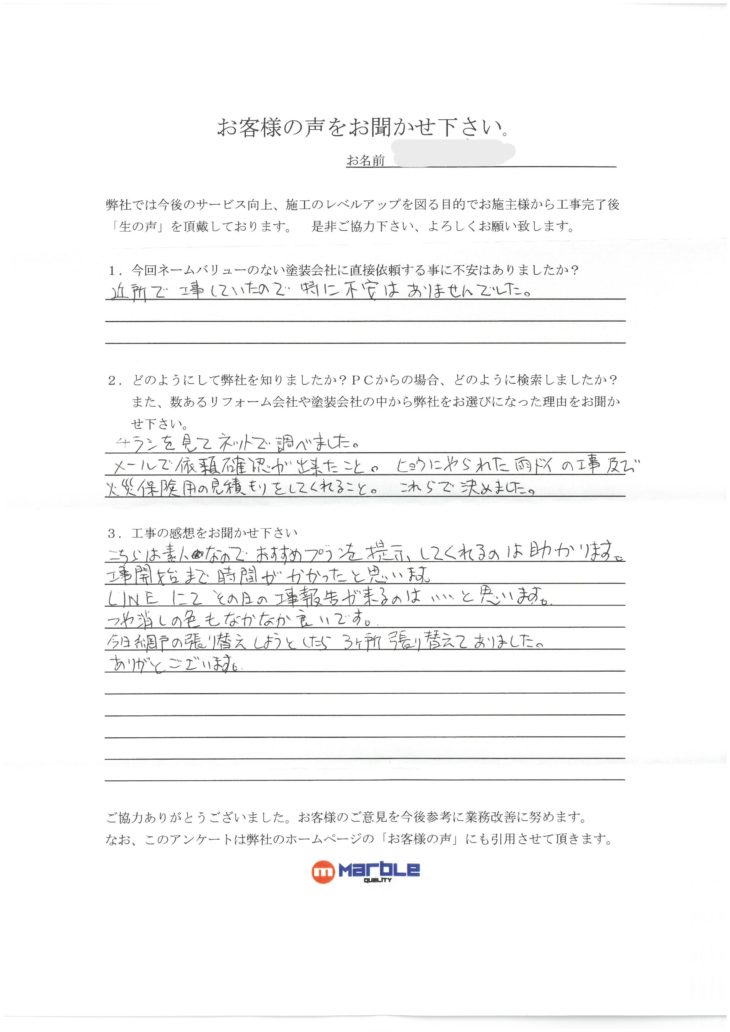 お客様の声をお聞かせ下さい。
お名前
弊社では今後のサービス向上、施工のレベルアップを図る目的でお施主様から工事完了後
「生の声」を頂戴しております。　是非ご協力下さい、よろしくお願い致します。
１．今回ネームバリューのない塗装会社に直接依頼する事に不安はありましたか？
近所で工事していたので特に不安はありませんでした。
２．どのようにして弊社を知りましたか？ＰＣからの場合、どのように検索しましたか？
また、数あるリフォーム会社や塗装会社の中から弊社をお選びになった理由をお聞か
せ下さい。
チラシを見てネットで調べました。
メールで依頼確認が出来たこと。ヒョウにやられた雨ドイの工事及び
火災保険用の見積もりをしてくれること。これらで決めました。
３．工事の感想をお聞かせ下さい
こちらは素人なのでおすすめプランを提示してくれるのは助かります。
工事開始まで時間がかかったと思います
LINEにてその日の工事報告が来るのはいいと思います。
つや消しの色もなかなか良いです。
今日網戸の張り替えしようとしたら3ヶ所張り替えてありました。
ありがとございます。
ご協力ありがとうございました。お客様のご意見を今後参考に業務改善に努めます。
なお、このアンケートは弊社のホームページの「お客様の声」にも引用させて頂きます。
m MARBLE
QUALITY